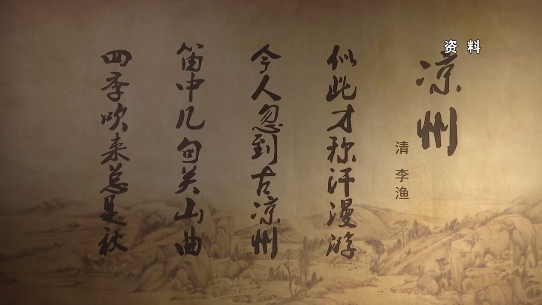 资 料
凉州
清 李渔
似此才称汗漫游
今人忽到古凉州
笛中几句关山曲
四季吹来总是秋